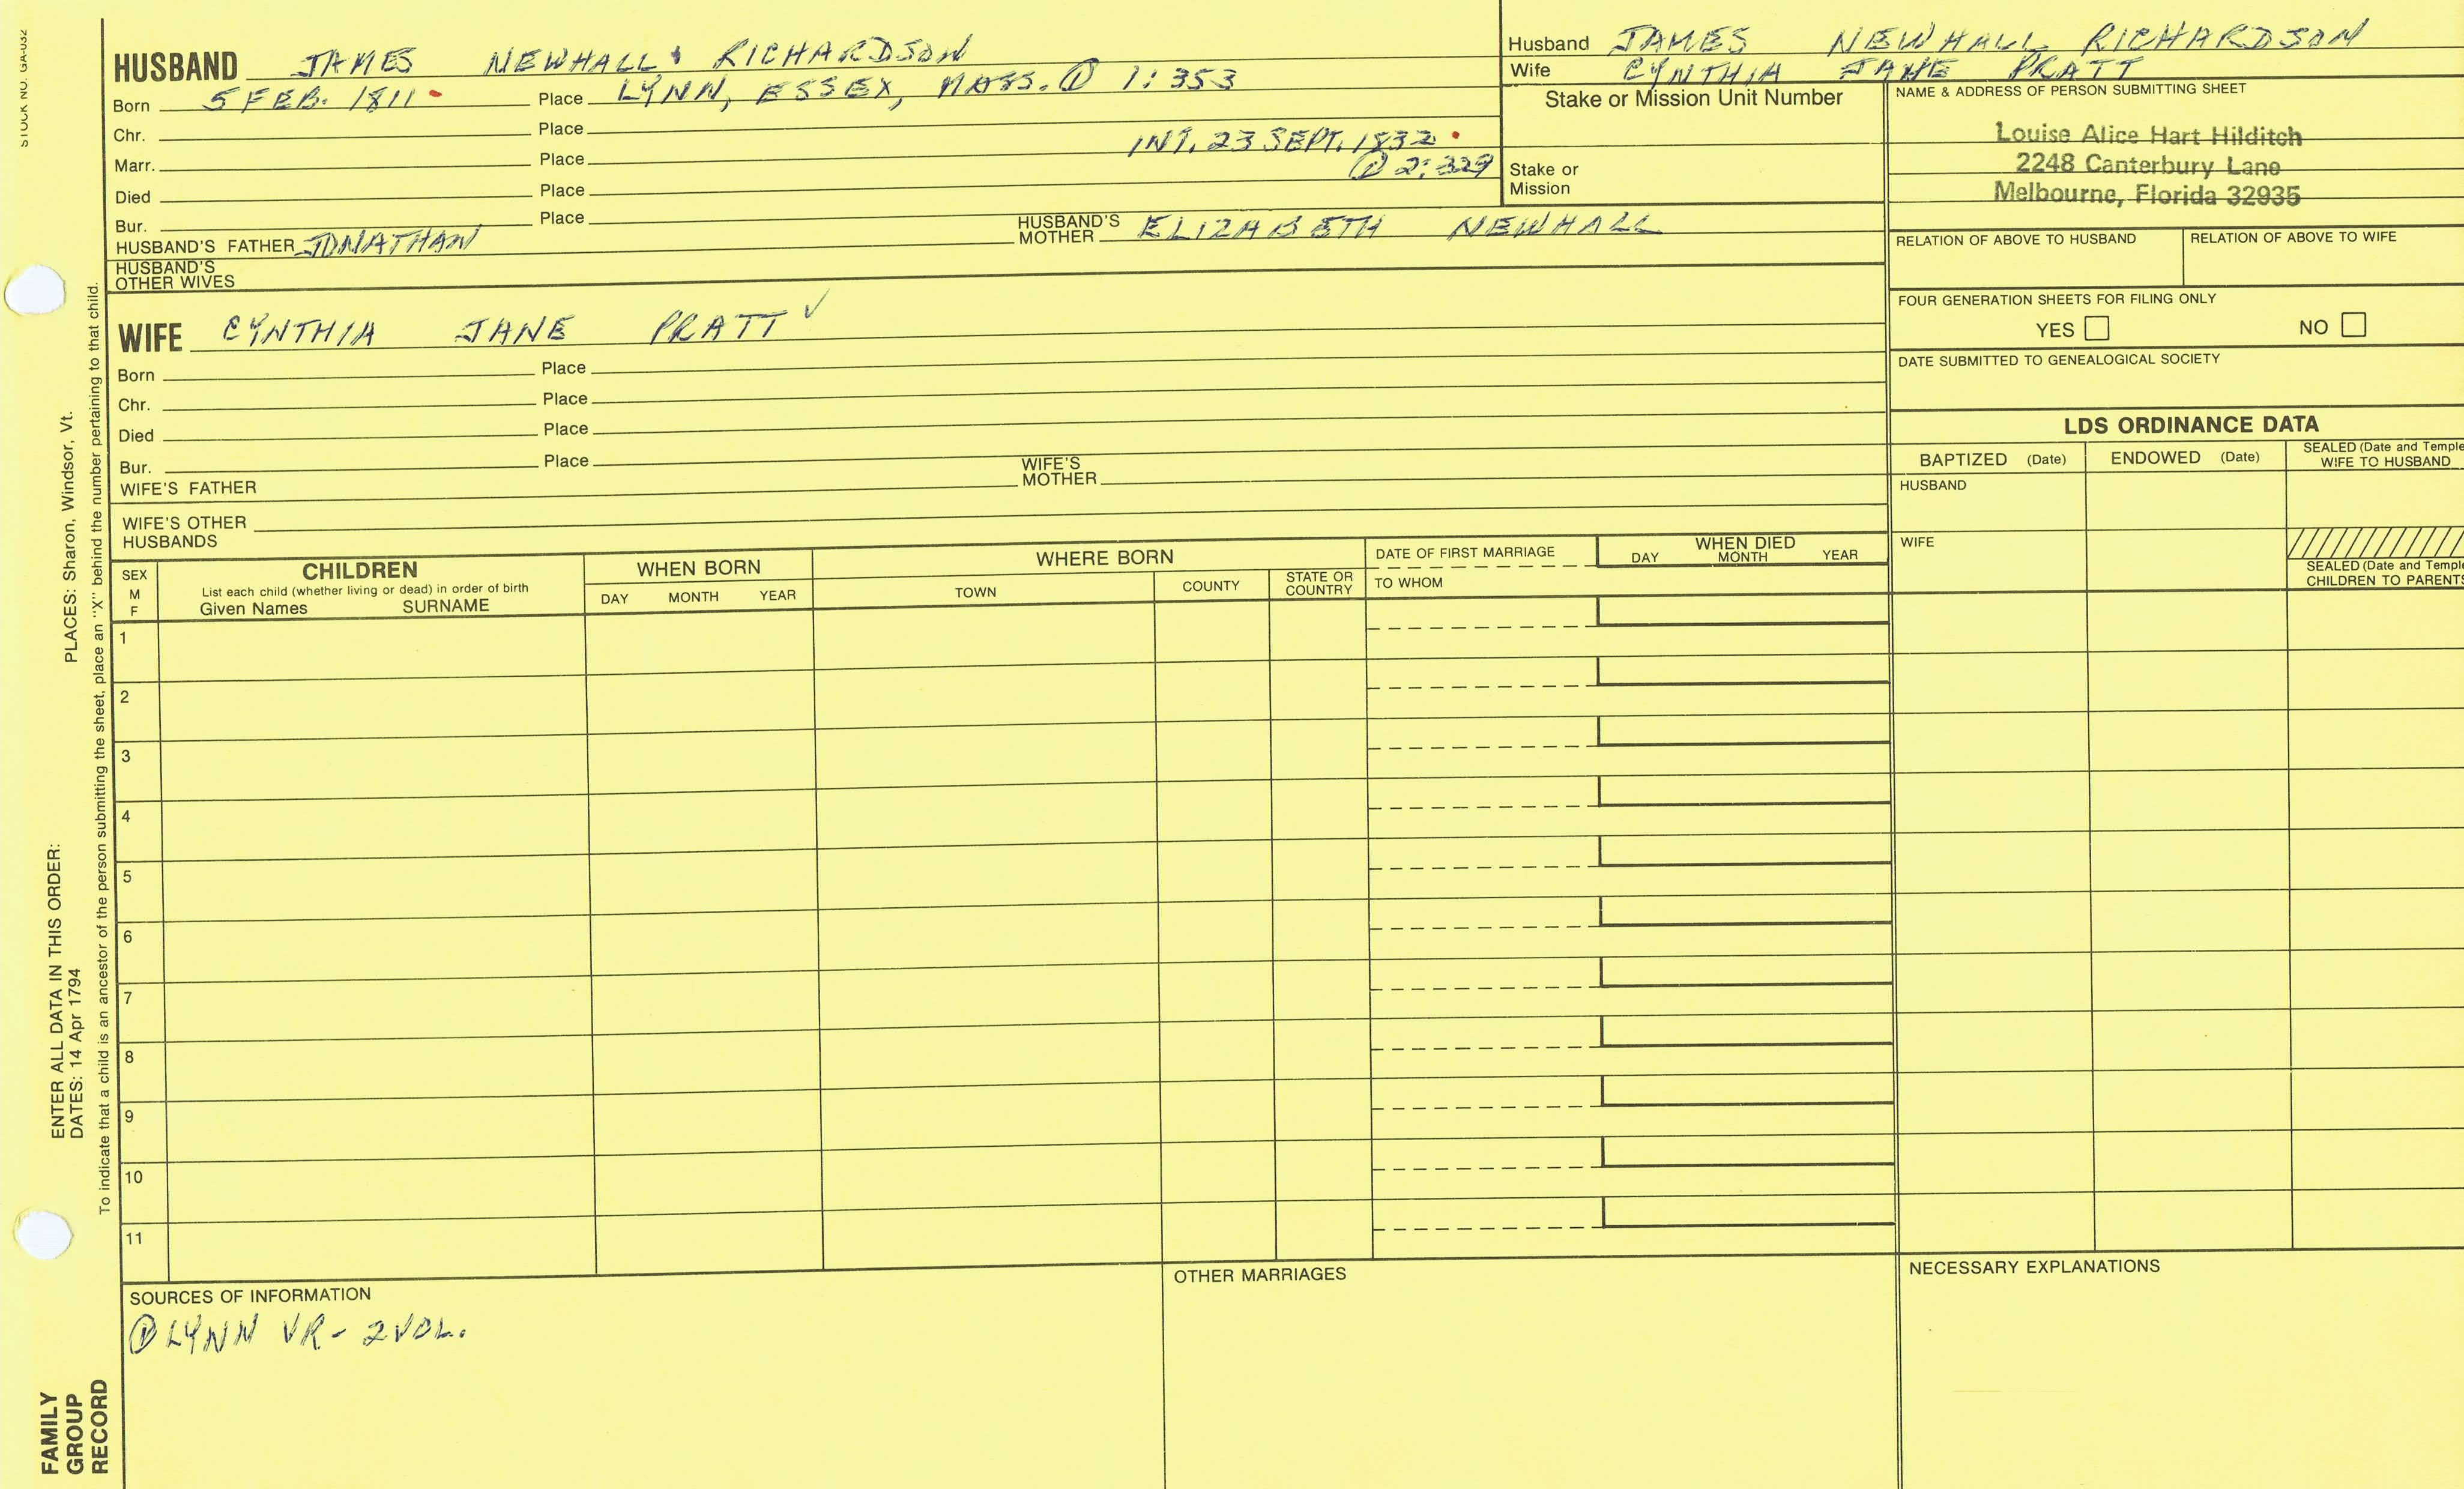 STOCK NO. GA-032
HUSBAND JAMES NEWHALL RICHARDSON
Born 5 FEB. 1811 Place LYNN, ESSEX, MASS. ① 1:353
Chr. Place
INT. 23 SEPT. 1832
Marr. Place
① 2:329
Died Place
Bur. Place
HUSBAND'S FATHER JONATHAN HUSBAND'S MOTHER ELIZABETH NEWHALL
HUSBAND'S OTHER WIVES
WIFE CYNTHIA JANE PRATT ✓
Born Place
Chr. Place
Died Place
Bur. Place
WIFE'S FATHER WIFE'S MOTHER
WIFE'S OTHER HUSBANDS
Husband JAMES NEWHALL RICHARDSON
Wife CYNTHIA JANE PRATT
Stake or Mission Unit Number
Stake or Mission
NAME & ADDRESS OF PERSON SUBMITTING SHEET
Louise Alice Hart Hilditch
2248 Canterbury Lane
Melbourne, Florida 32935
RELATION OF ABOVE TO HUSBAND RELATION OF ABOVE TO WIFE
FOUR GENERATION SHEETS FOR FILING ONLY
YES NO
DATE SUBMITTED TO GENEALOGICAL SOCIETY
LDS ORDINANCE DATA
BAPTIZED (Date) ENDOWED (Date) SEALED (Date and Temple
WIFE TO HUSBAND
HUSBAND
WIFE
SEALED (Date and Templ
CHILDREN TO PARENTS
SEX
M
F
CHILDREN
List each child (whether living or dead) in order of birth
Given Names SURNAME
WHEN BORN
DAY MONTH YEAR
WHERE BORN
TOWN COUNTY STATE OR COUNTRY
DATE OF FIRST MARRIAGE
TO WHOM
WHEN DIED
DAY MONTH YEAR
1
2
3
4
5
6
7
8
9
10
11
SOURCES OF INFORMATION
① LYNN VR - 2 VOL.
OTHER MARRIAGES
NECESSARY EXPLANATIONS
ENTER ALL DATA IN THIS ORDER:
DATES: 14 Apr 1794
PLACES: Sharon, Windsor, Vt.
To indicate that a child is an ancestor of the person submitting the sheet, place an "X" behind the number pertaining to that child.
FAMILY
GROUP
RECORD